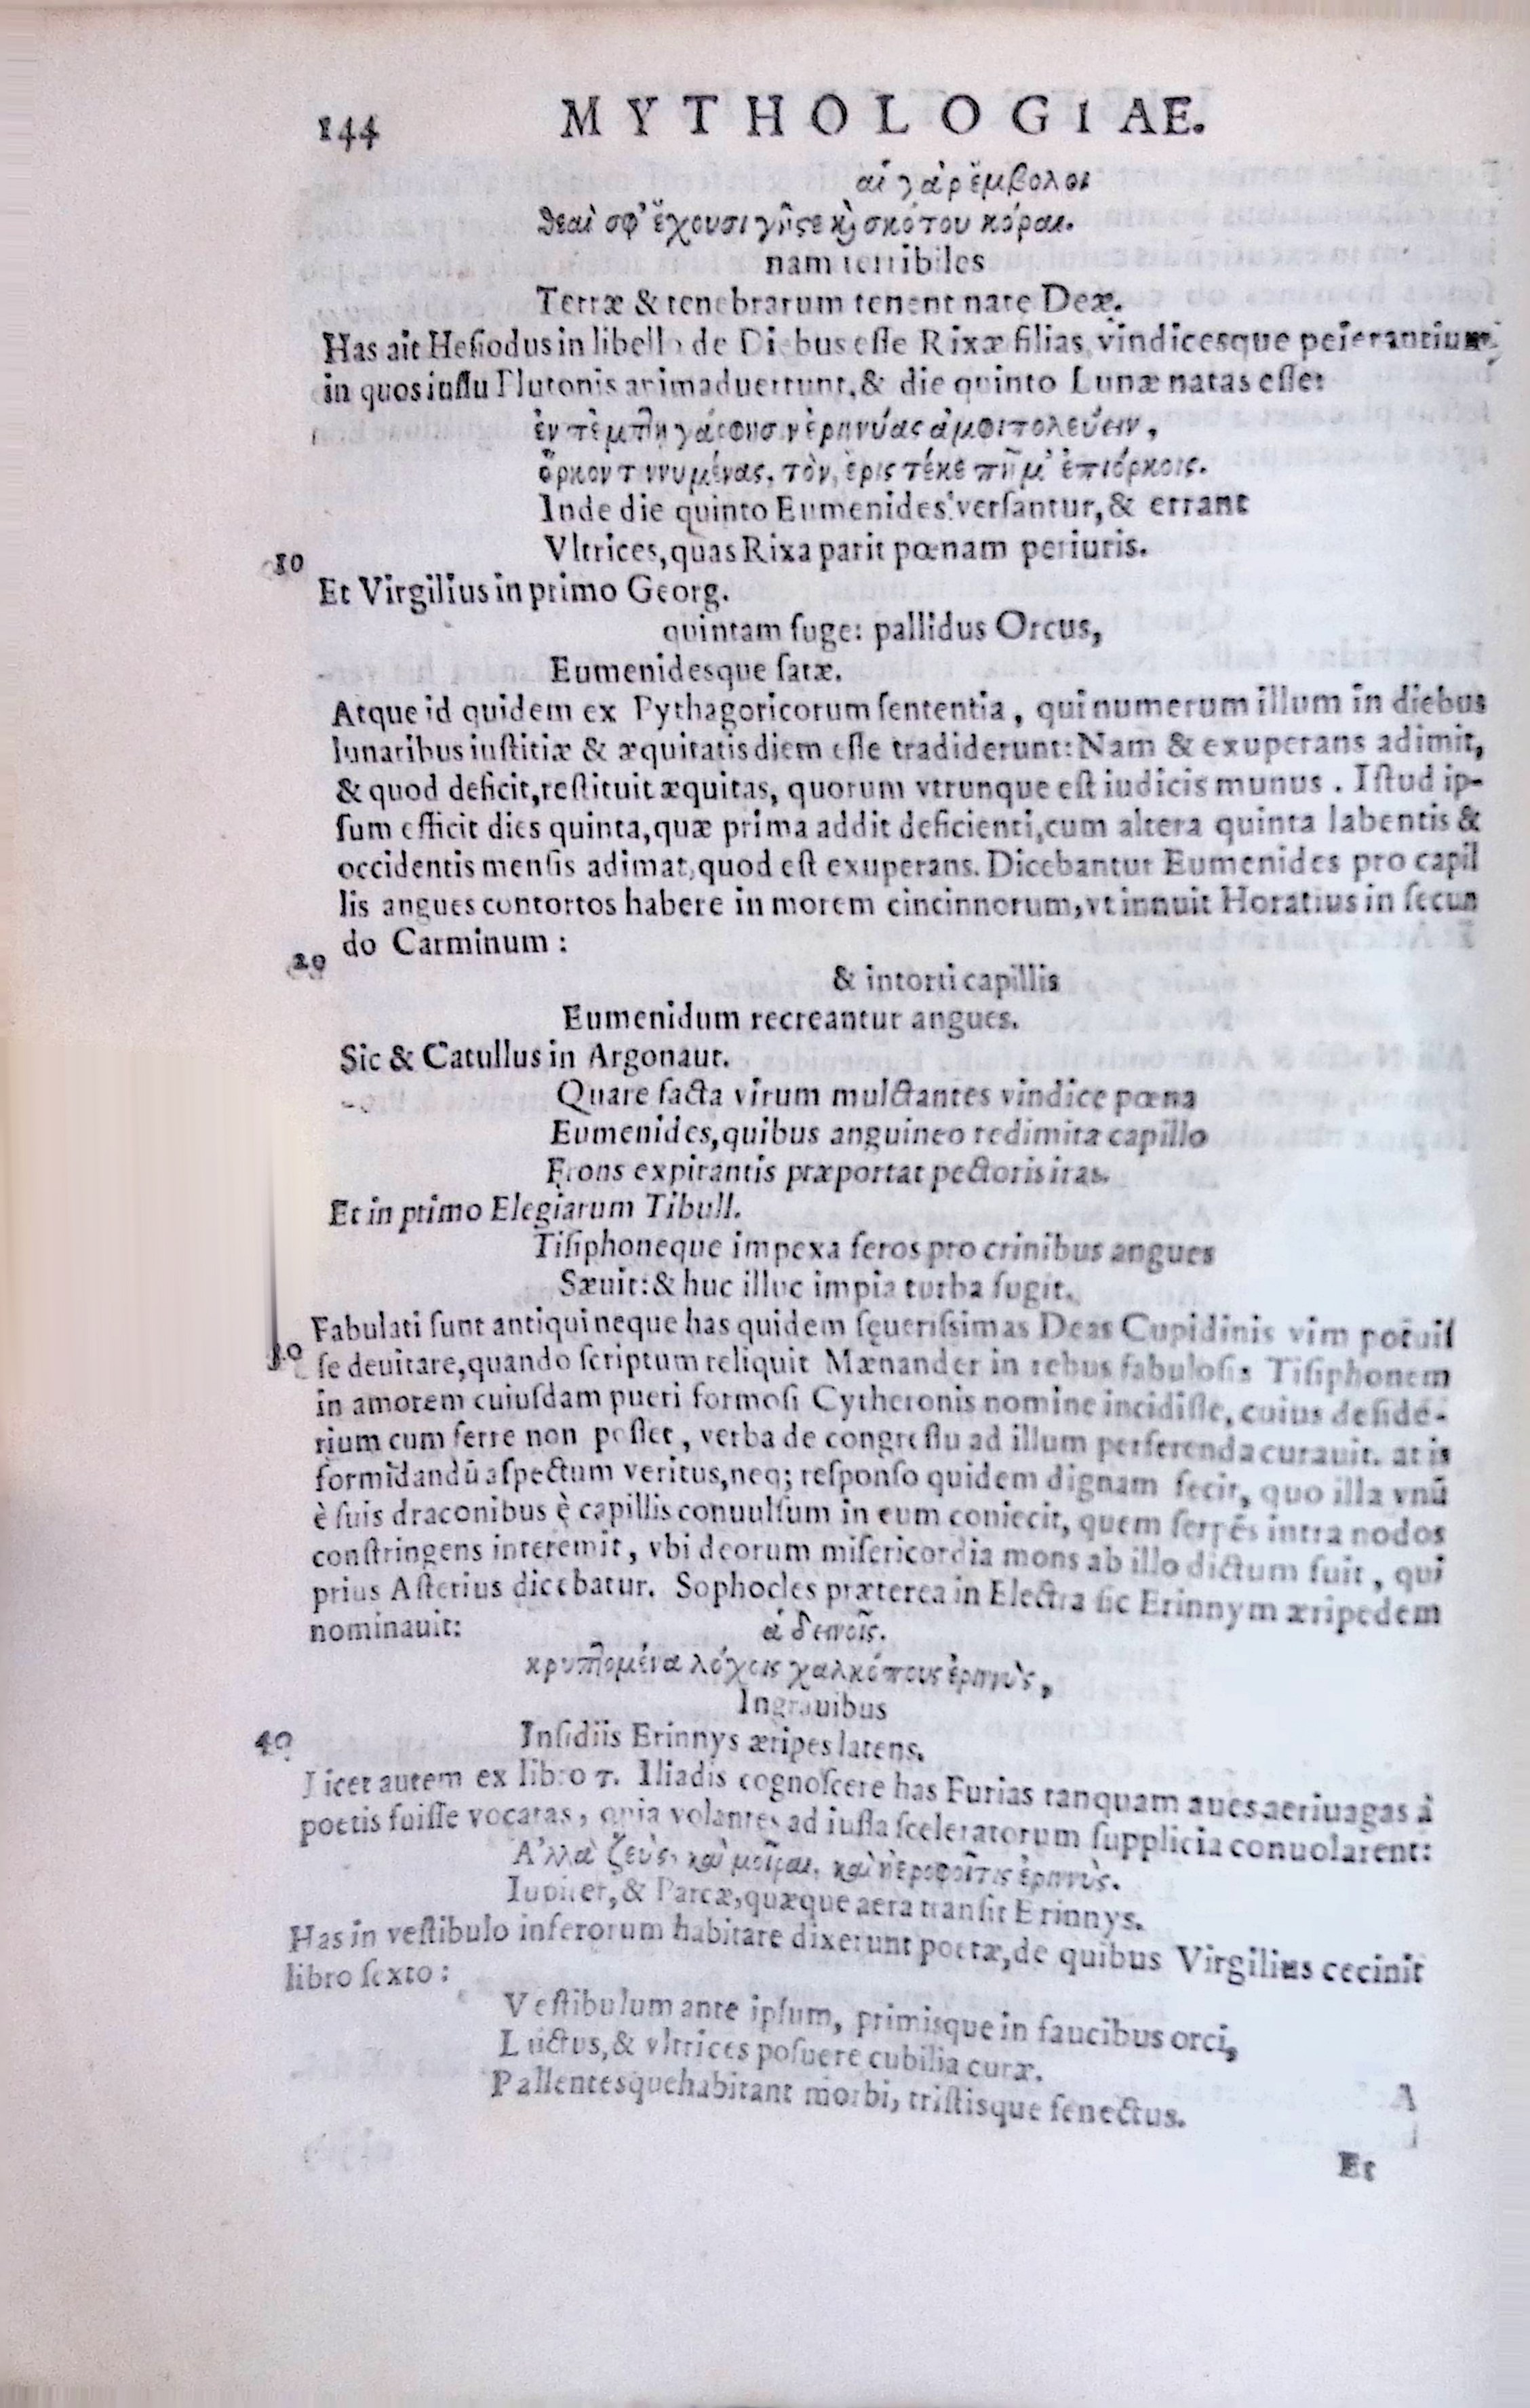 144 MYTHOLOGIAE.
αἱ γὰρ ἔμβολοι
θεαὶ σφ' ἔχουσι γῆς ϗ σκότου κόραι.
nam terribiles
Terræ & tenebrarum tenent natę Deæ.
Has ait Hesiodus in libello de Diebus esse Rixæ filias, vindicesque peierantium,
in quos iussu Plutonis animaduertunt, & die quinto Lunæ natas esse:
ἐν πέμπτῃ γάρ φησιν ἐρηνύας ἀμφιπολεύειν,
ὅρκον τιννυμένας, τὸν, ἔρις τέκε πῆμ' ἐπιόρκοις.
Inde die quinto Eumenides versantur, & errant
10 Vltrices, quas Rixa parit pœnam periuris.
Et Virgilius in primo Georg.
quintam fuge: pallidus Orcus,
Eumenidesque satæ.
Atque id quidem ex Pythagoricorum sententia, qui numerum illum in diebus
lunaribus iustitiæ & æquitatis diem esse tradiderunt: Nam & exuperans adimit,
& quod deficit, restituit æquitas, quorum vtrunque est iudicis munus. Istud ip-
sum efficit dies quinta, quæ prima addit deficienti, cum altera quinta labentis &
occidentis mensis adimat, quod est exuperans. Dicebantur Eumenides pro capil
lis angues contortos habere in morem cincinnorum, vt innuit Horatius in secun
20 do Carminum:
& intorti capillis
Eumenidum recreantur angues.
Sic & Catullus in Argonaut.
Quare facta virum mulctantes vindice pœna
Eumenides, quibus anguineo redimita capillo
Frons expirantis præportat pectoris iras.
Et in primo Elegiarum Tibull.
Tisiphoneque impexa feros pro crinibus angues
Sæuit: & huc illuc impia turba fugit.
Fabulati sunt antiqui neque has quidem sęuerissimas Deas Cupidinis vim potuis
30 se deuitare, quando scriptum reliquit Mænander in rebus fabulosis Tisiphonem
in amorem cuiusdam pueri formosi Cytheronis nomine incidisse, cuius deside-
rium cum ferre non posset, verba de congressu ad illum perferenda curauit. at is
formidandū aspectum veritus, neq; responso quidem dignam fecit, quo illa vnū
è suis draconibus ę capillis conuulsum in eum coniecit, quem serpēs intra nodos
constringens interemit, vbi deorum misericordia mons ab illo dictum fuit, qui
prius Asterius dicebatur. Sophocles præterea in Electra sic Erinnym æripedem
nominauit:
ἁ δεινοῖς.
κρυπτομένα λόχοις χαλκόπους ἐρηνὺς,
Ingrauibus
40 Insidiis Erinnys æripes latens.
Licet autem ex libro τ. Iliadis cognoscere has Furias tanquam aues aeriuagas à
poetis fuisse vocatas, quia volantes ad iusta sceleratorum supplicia conuolarent:
Ἀλλὰ ζεὺς, καὶ μοῖραι, καὶ ἠεροφοῖτις ἐρηνὺς.
Iupiter, & Parcæ, quæque aera transit Erinnys.
Has in vestibulo inferorum habitare dixerunt poetæ, de quibus Virgilius cecinit
libro sexto:
Vestibulum ante ipsum, primisque in faucibus orci,
Luctus, & vltrices posuere cubilia curæ.
Pallentesque habitant morbi, tristisque senectus.
Et